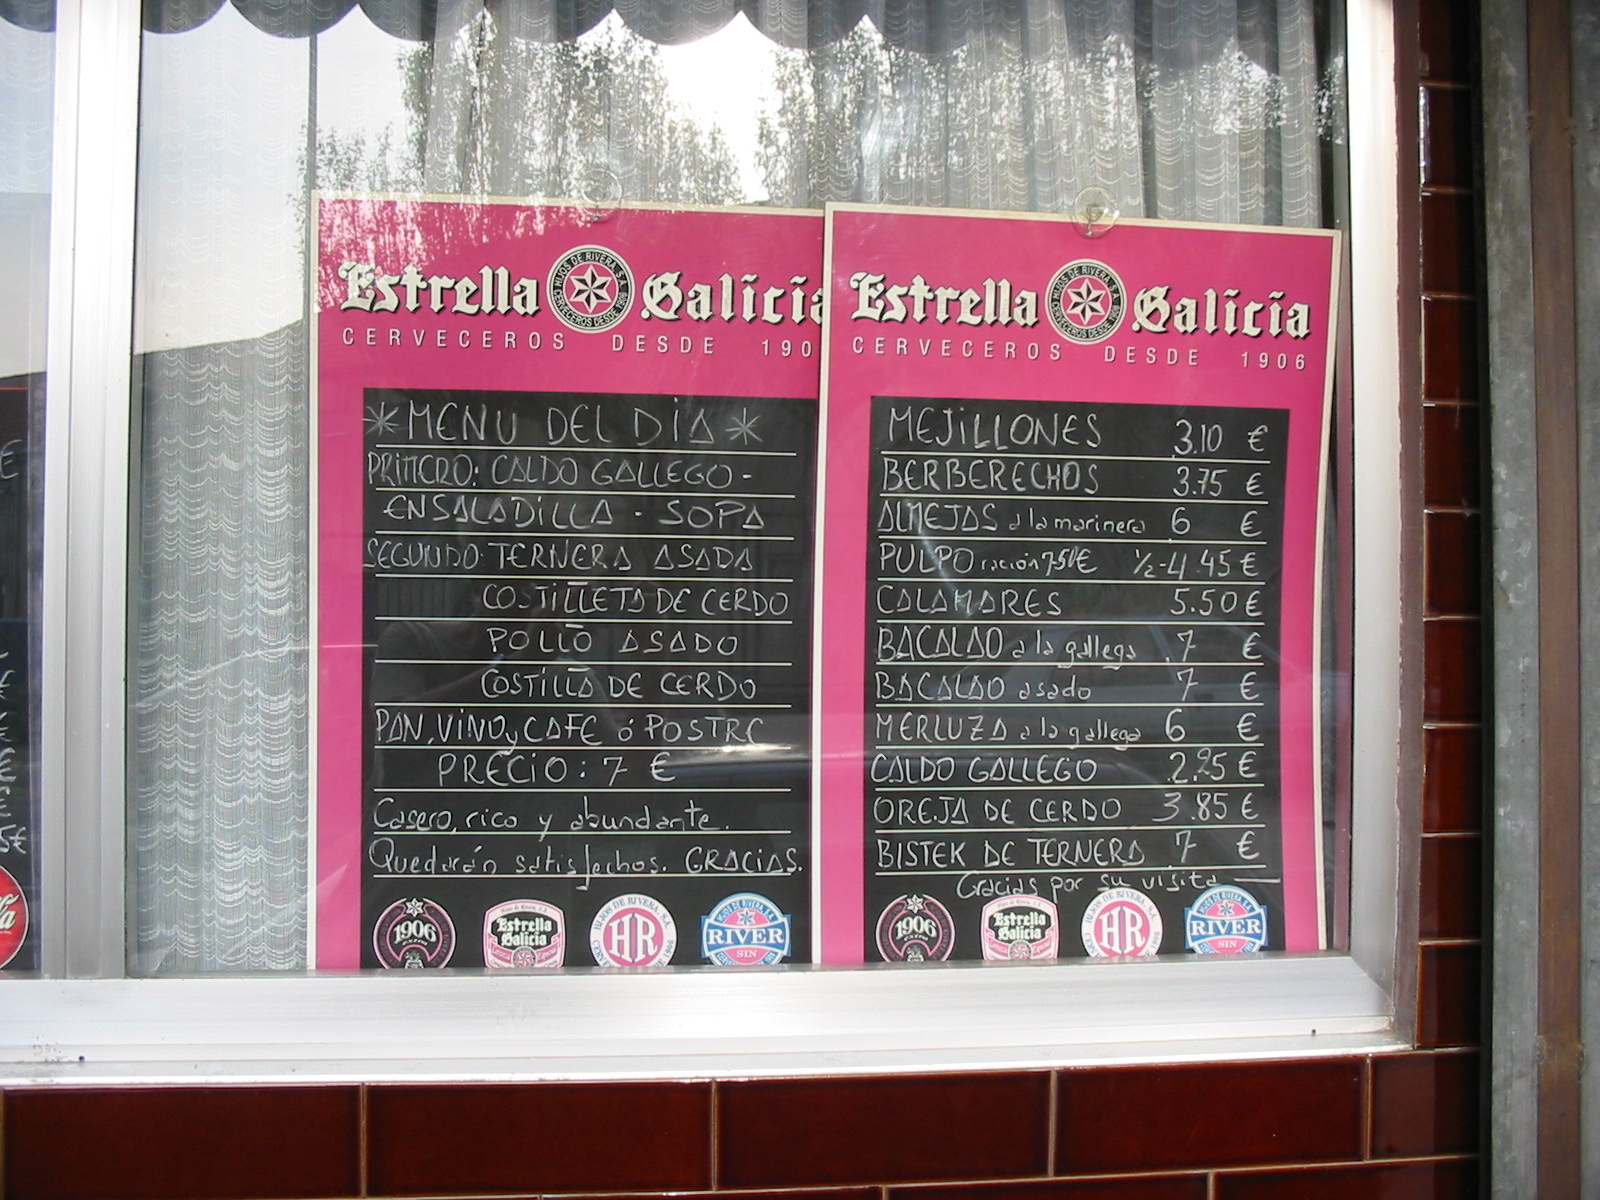 Estrella Galicia
CERVECEROS DESDE 190
* MENU DEL DiA *
PRIMERO: CALDO GALLEGO -
ENSALADiLLA - SOPA
SEGUNDO: TERNERA ASADA
COSTILLETA DE CERDO
POLLO ASADO
COSTILLA DE CERDO
PAN, ViNO y CAFE ó POSTRE
PRECiO: 7 €
Casero, rico y abundante.
Quedarán satisfechos. GRACiAS.
1906
Estrella Galicia
HIJOS DE RIVERA, S.A.
HR
RIVER
SIN
Estrella Galicia
CERVECEROS DESDE 1906
MEJiLLONES 3.10 €
BERBERECHOS 3.75 €
ALMEJAS a la marinera 6 €
PULPO ración 7.50€ 1/2-4.45€
CALAMARES 5.50€
BACALAO a la gallega 7 €
BACALAO asado 7 €
MERLUZA a la gallega 6 €
CALDO GALLEGO 2.25€
OREJA DE CERDO 3.85€
BISTEK DE TERNERA 7 €
Gracias por su visita
1906
Estrella Galicia
HIJOS DE RIVERA, S.A.
HR
RIVER
SIN